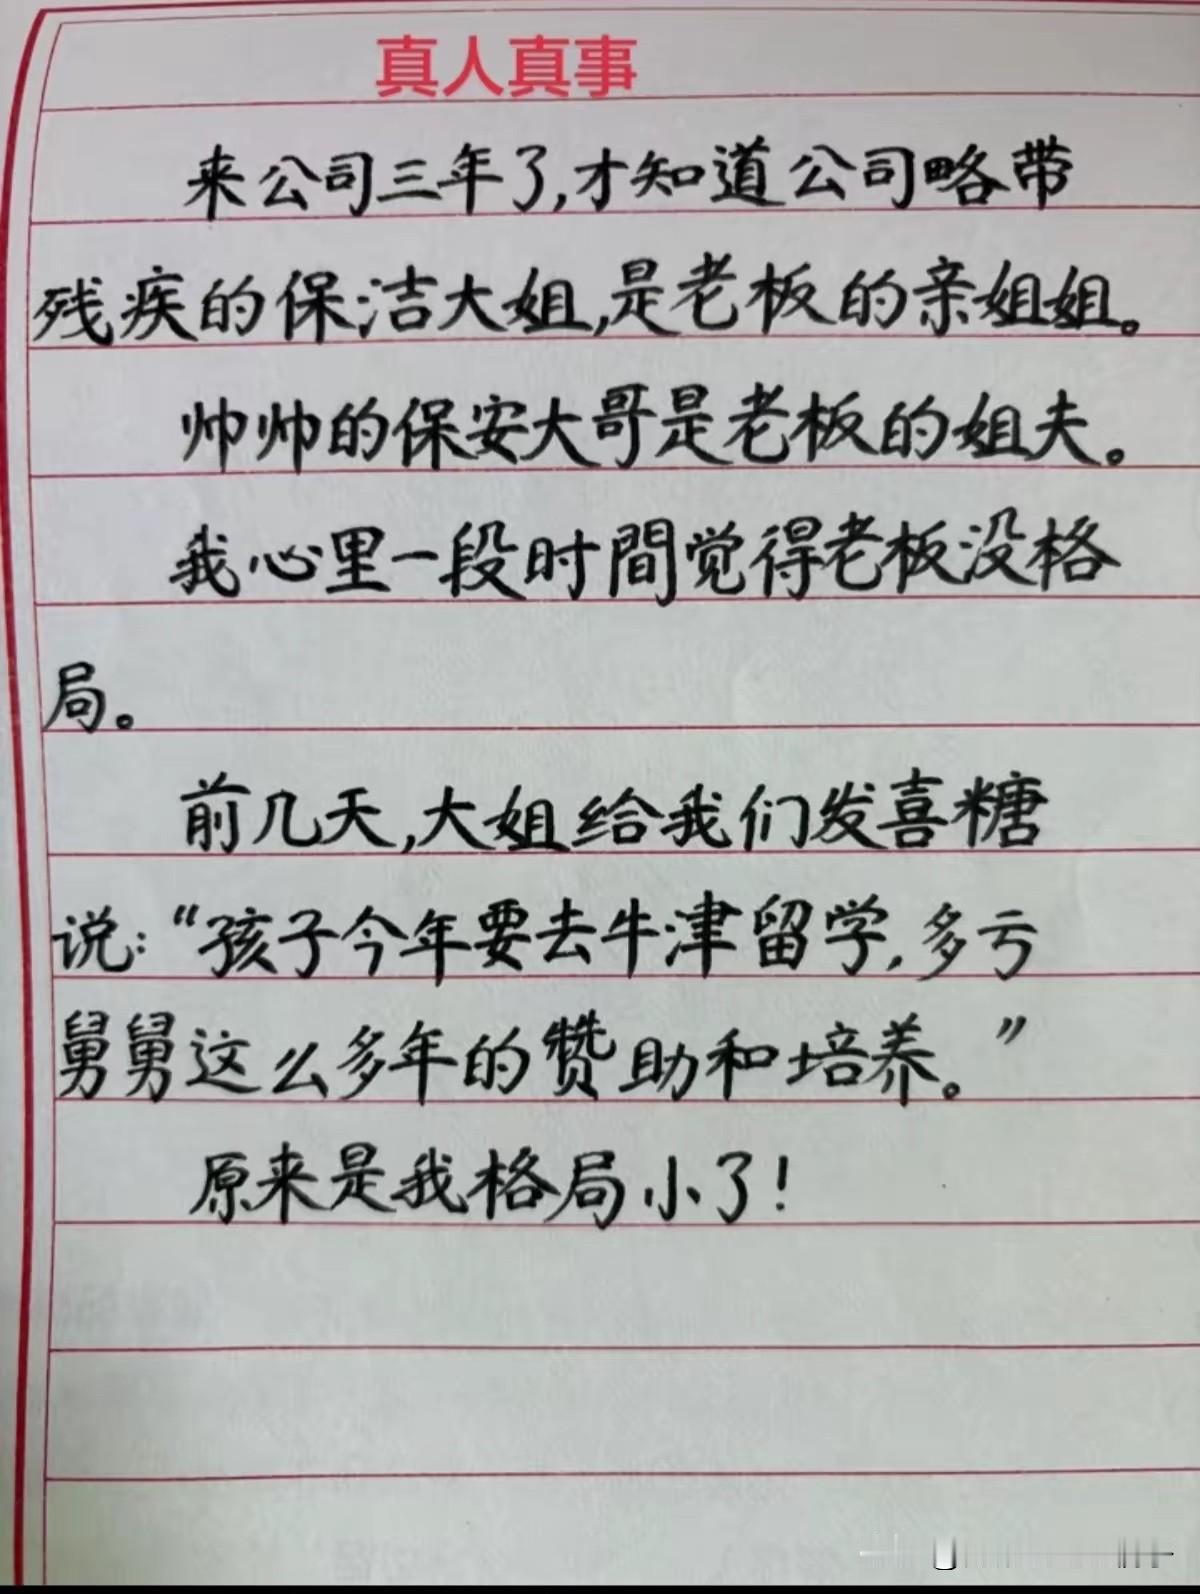 真人真事
来公司三年了,才知道公司略带
残疾的保洁大姐,是老板的亲姐姐。
帅帅的保安大哥是老板的姐夫。
我心里一段时間觉得老板没格
局。
前几天,大姐给我们发喜糖
说:“孩子今年要去牛津留学,多亏
舅舅这么多年的赞助和培养。”
原来是我格局小了!